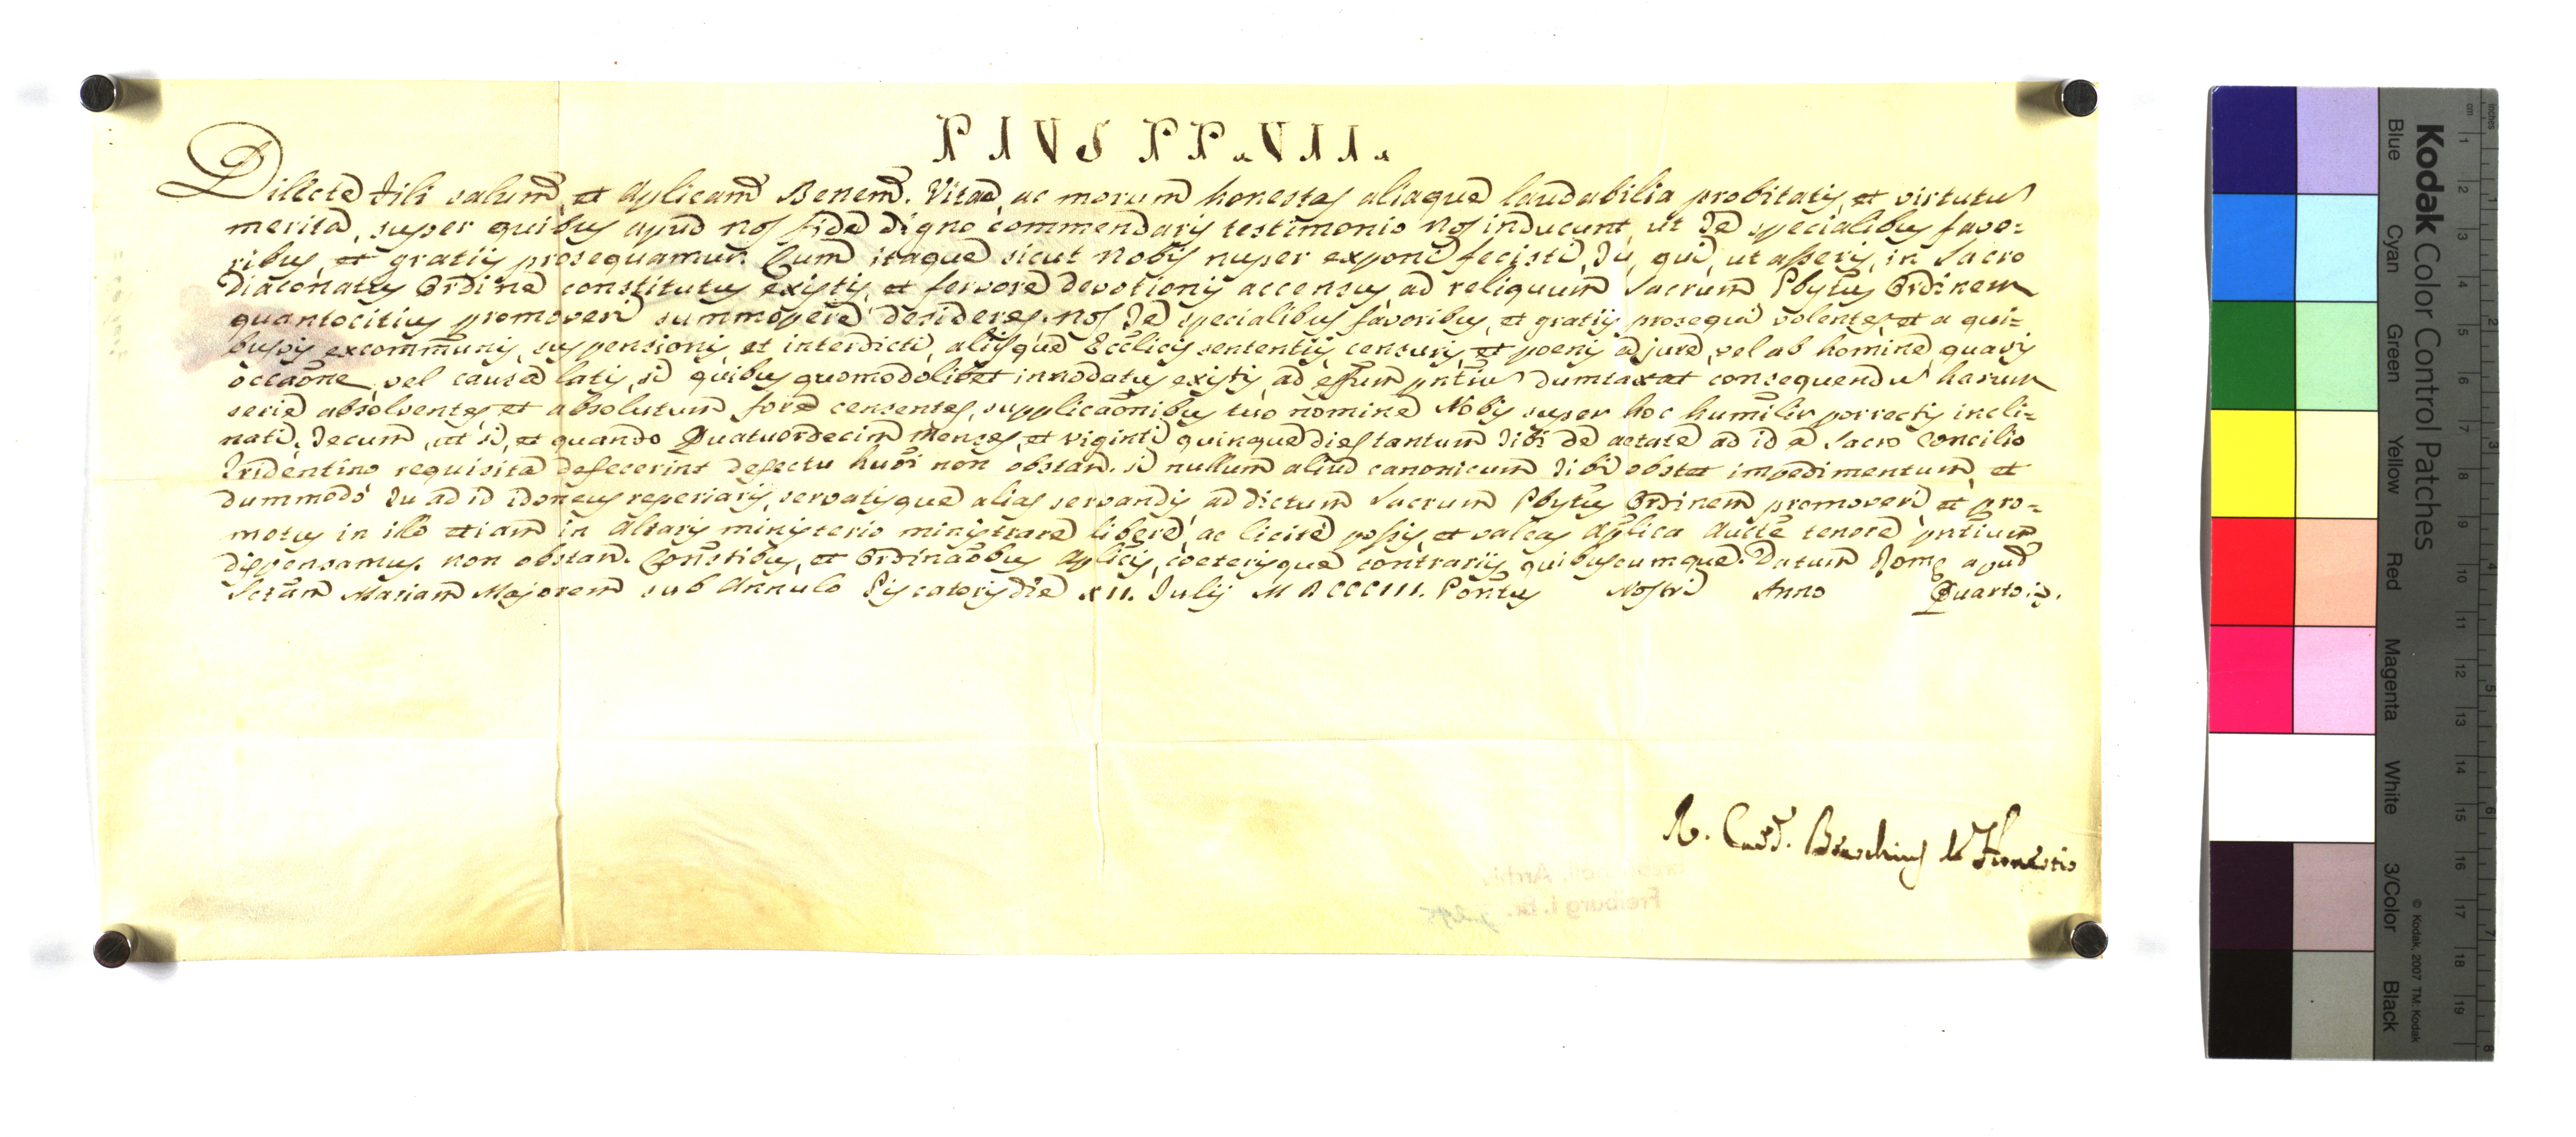 PIUS PP. VII.
Dilecte Fili salutem, et Aplicam Benem. Vitae, ac morum honestas aliaque laudabilia probitatis, et virtutu
merita, super quibus apud nos fide digno commendaris testimonio nos inducunt, ut Te specialibus favo-
ribus, et gratiis prosequamur. Cum itaque sicut Nobis nuper exponi fecisti, Tu, qui, ut asseris, in Sacro
Diaconatus Ordine constitutus existis, et fervore devotionis accensus, ad reliquum Sacrum Pbytus Ordinem
quantocitius promoveri summopere desideres, nos Te specialibus favoribus, et gratiis prosequi volentes, et a qui-
busvis excommunis, suspensionis, et interdicti, aliisque Ecclicis sententiis, censuris, et poenis a jure, vel ab homine, quavis
occaone, vel causa latis, si quibus quomodolibet innodatus existis, ad effum pntiu dumtaxat consequendu harum
serie absolventes, et absolutum fore censentes, supplicaonibus tuo nomine Nobis super hoc humiliter porrectis incli-
nati, Tecum, ut si, et quando Quatuordecim Menses, et viginti quinque dies tantum Tibi de aetate ad id a Sacro Concilio
Tridentino requisita defecerint defectu huoi non obstan. si nullum aliud canonicum Tibi obstet impedimentum, et
dummodo Tu ad id idoneus reperiaris, servatisque alias servandis, ad dictum Sacrum Pbytus Ordinem promoveri, et pro-
motus in illo etiam in Altaris ministerio ministrare libere, ac licite possis, et valeas Aplica Aucte tenore pntium
dispensamus. non obstan. Constibus, et Ordinaobus Aplicis, coeterisque contrariis quibuscumque. Datum Rome apud
Sctam Mariam Majorem sub Annulo Piscatoris die XII. Julij MDCCCIII. Pontus Nostri Anno Quarto
R. Card. Braschius de Honestis
Archiv
Freiburg i. Br.
Kodak Color Control Patches
Blue Cyan Green Yellow Red Magenta White 3/Color Black
© Kodak, 2007 TM: Kodak
inches 1 2 3 4 5 6 7 8
cm 1 2 3 4 5 6 7 8 9 10 11 12 13 14 15 16 17 18 19